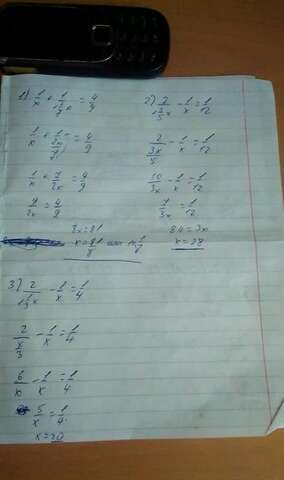 1) 1/x + 1/(1 1/7 x) = 4/9
1/x + 1/(8x/7) = 4/9
1/x + 7/8x = 4/9
8x = 81
x = 81/8
2) 2/(3/5 x) - 1/x = 1/12
2/(3x/5) - 1/x = 1/12
10/3x - 1/x = 1/12
7/3x = 1/12
84 = 3x
x = 28
3) 2/(1/3 x) - 1/x = 1/4
2/(x/3) - 1/x = 1/4
6/x - 1/x = 1/4
5/x = 1/4
x = 20